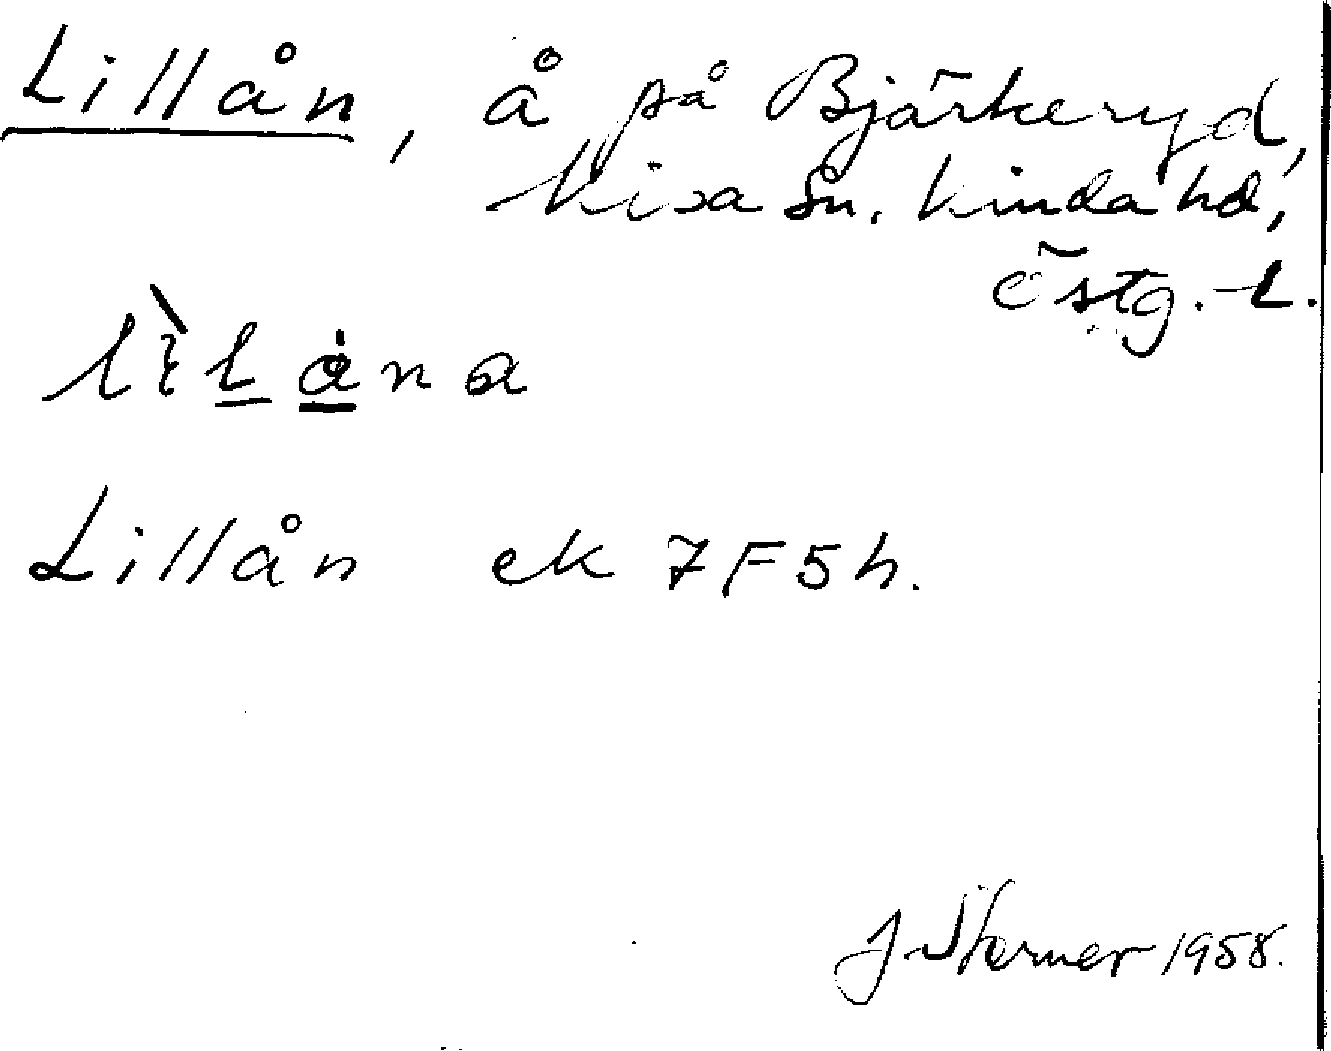 Lillån, å på Bjärkeryd,
Kisa sn. Kinda hd,
Östg. l.
Lillån ek 7F5h.
J Sterner 1958.